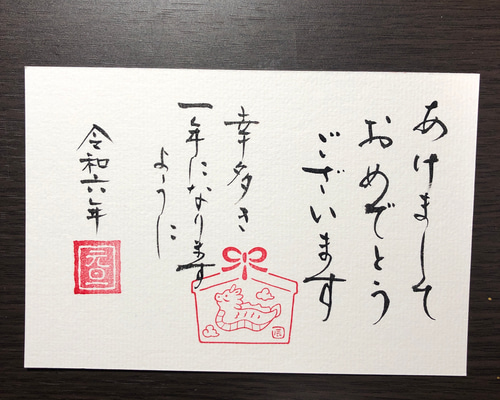 あけまして
おめでとう
ございます
幸多き
一年になります
ように
令和六年
元旦